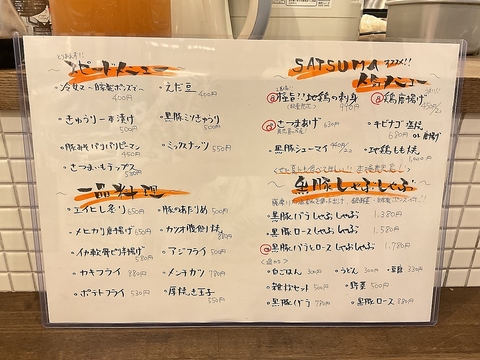 スピードメニュー
・冷奴 400円
・えだ豆 400円
・きゅうり一本漬け 500円
・黒豚ミソきゅうり 500円
・豚みそパリパリピーマン 450円
・ミックスナッツ 550円
・さつまいもチップス 580円
一品料理
・エイヒレ炙り 650円
・豚のあたりめ 500円
・メヒカリ唐揚げ 650円
・カツオ腹側焼 880円
・イカ軟骨ピリ辛揚げ 580円
・アジフライ 500円
・カキフライ 880円
・メンチカツ 780円
・ポテトフライ 530円
・厚焼き玉子 550円
SATSUMA
極旨!!地鶏の刺身
鶏唐揚げ
さつまあげ 630円
・キビナゴ 塩焼 or 唐揚 680円
・黒豚シューマイ
・地鶏もも焼
黒豚しゃぶしゃぶ
・黒豚バラしゃぶしゃぶ 1,380円
・黒豚ロースしゃぶしゃぶ 1,580円
黒豚バラとロースしゃぶしゃぶ 1,780円
・白ごはん 300円 ・うどん 300円 ・豆腐 330円
・雑炊セット 500円 ・野菜 500円
・黒豚バラ 780円 ・黒豚ロース 880円